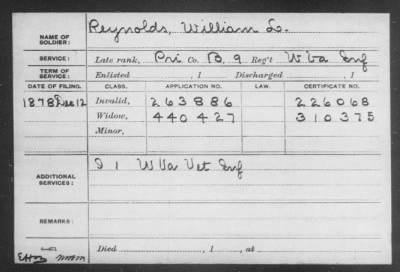 NAME OF SOLDIER: Reynolds, William L.
SERVICE: Late rank, Pri Co. B, 9 Reg't W Va Inf
TERM OF SERVICE: Enlisted , 1 Discharged , 1
DATE OF FILING. CLASS. APPLICATION NO. LAW. CERTIFICATE NO.
1878 Dec 12 Invalid, 263886 226068
Widow, 440427 310375
Minor,
ADDITIONAL SERVICES: D 1 W Va Vet Inf
REMARKS:
Died , 1 , at